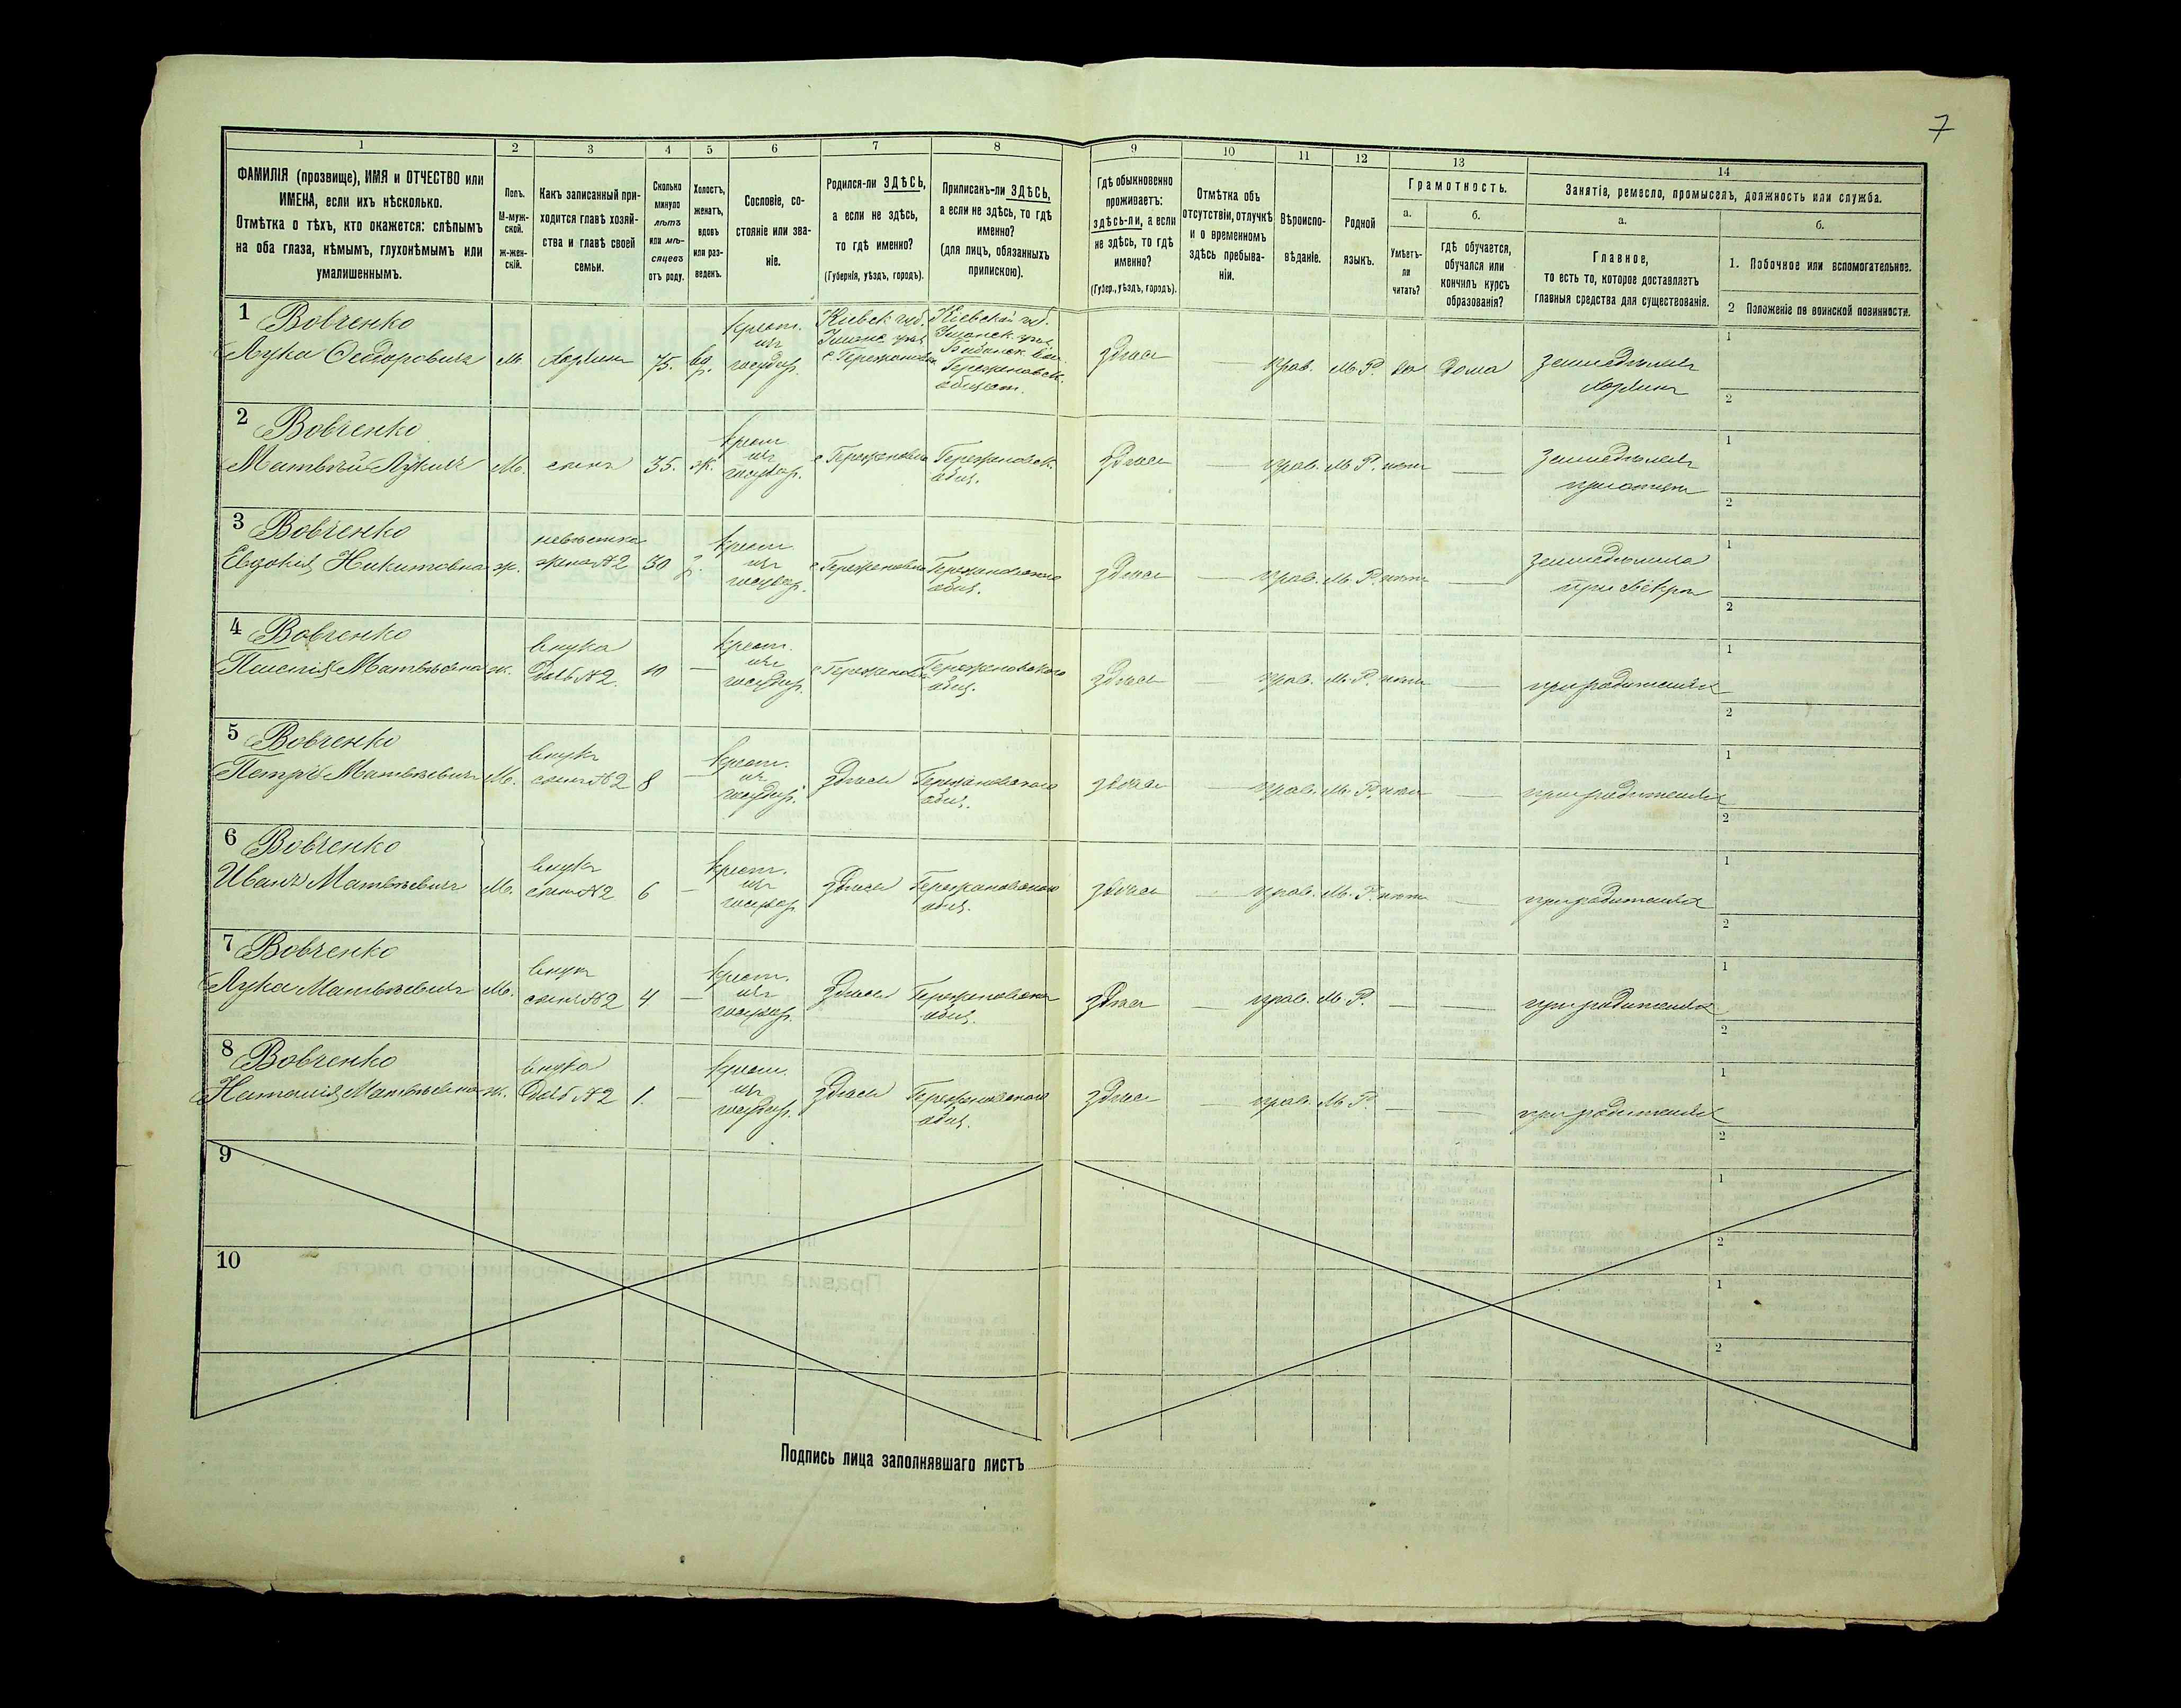 7
1
2
3
4
5
6
7
8
9
10
11
12
13
14
ФАМИЛІЯ (прозвище), ИМЯ и ОТЧЕСТВО или
ИМЕНА, если ихъ нѣсколько.
Отмѣтка о тѣхъ, кто окажется: слѣпымъ
на оба глаза, нѣмымъ, глухонѣмымъ или
умалишеннымъ.
Полъ.
М-муж-
ской.
ж-жен-
скій.
Какъ записанный при-
ходится главѣ хозяй-
ства и главѣ своей
семьи.
Сколько
минуло
лѣтъ
или мѣ-
сяцевъ
отъ роду.
Холостъ,
женатъ,
вдовъ
или раз-
веденъ.
Сословіе, со-
стояніе или зва-
ніе.
Родился-ли ЗДѢСЬ,
а если не здѣсь,
то гдѣ именно?
(Губернія, уѣздъ, городъ).
Приписанъ-ли ЗДѢСЬ,
а если не здѣсь, то гдѣ
именно?
(для лицъ, обязанныхъ
припискою).
Гдѣ обыкновенно
проживаетъ:
здѣсь-ли, а если
не здѣсь, то гдѣ
именно?
(Губер., уѣздъ, городъ).
Отмѣтка объ
отсутствіи, отлучкѣ
и о временномъ
здѣсь пребыва-
ніи.
Вѣроиспо-
вѣданіе.
Родной
языкъ.
Грамотность.
а.
б.
Умѣетъ-
ли
читать?
гдѣ обучается,
обучался или
кончилъ курсъ
образованія?
Занятія, ремесло, промыселъ, должность или служба.
а.
б.
Главное,
то есть то, которое доставляетъ
главныя средства для существованія.
1. Побочное или вспомогательное.
2 Положеніе по воинской повинности.
1 Вовченко
Лука Ѳедоровичъ м. хозяинъ 75. вд. крест. изъ государ.
Кіевск губ.
с. Гереженовка
Кіевской губ.
Уманск. уѣз.
Гереженовск.
общест.
здѣсь — прав. М.Р. да дома земледѣлецъ
хозяинъ
2 Вовченко
Матвѣй Лукичъ м. сынъ 35. ж. крест. изъ государ. с Гереженовка Гереженовск. общ. здѣсь — прав. М.Р. нѣтъ — земледѣлецъ
при отцѣ
3 Вовченко
Евдокія Никитовна ж. невѣстка жена №2 30 з. крест. изъ государ. с Гереженовка Гереженовскаго общ. здѣсь — прав. М.Р. нѣтъ — земледѣлица
при свекрѣ
4 Вовченко
Матвѣевна ж. внука дочь №2. 10 — крест. изъ государ. с Гереженовка Гереженовскаго общ. здѣсь — прав. М.Р. нѣтъ — при родителяхъ
5 Вовченко
Петръ Матвѣевичъ м. внукъ сынъ №2 8 — крест. изъ государ. здѣсь Гереженовскаго общ. здѣсь — прав. М.Р. нѣтъ — при родителяхъ
6 Вовченко
Иванъ Матвѣевичъ м. внукъ сынъ №2 6 — крест. изъ государ. здѣсь Гереженовскаго общ. здѣсь — прав. М.Р. нѣтъ — при родителяхъ
7 Вовченко
Лука Матвѣевичъ м. внукъ сынъ №2 4 — крест. изъ государ. здѣсь Гереженовскаго общ. здѣсь — прав. М.Р. — — при родителяхъ
8 Вовченко
Наталія Матвѣевна ж. внука дочь №2 1. — крест. изъ государ. здѣсь Гереженовскаго общ. здѣсь — прав. М.Р. — — при родителяхъ
9
10
Подпись лица заполнявшаго листъ